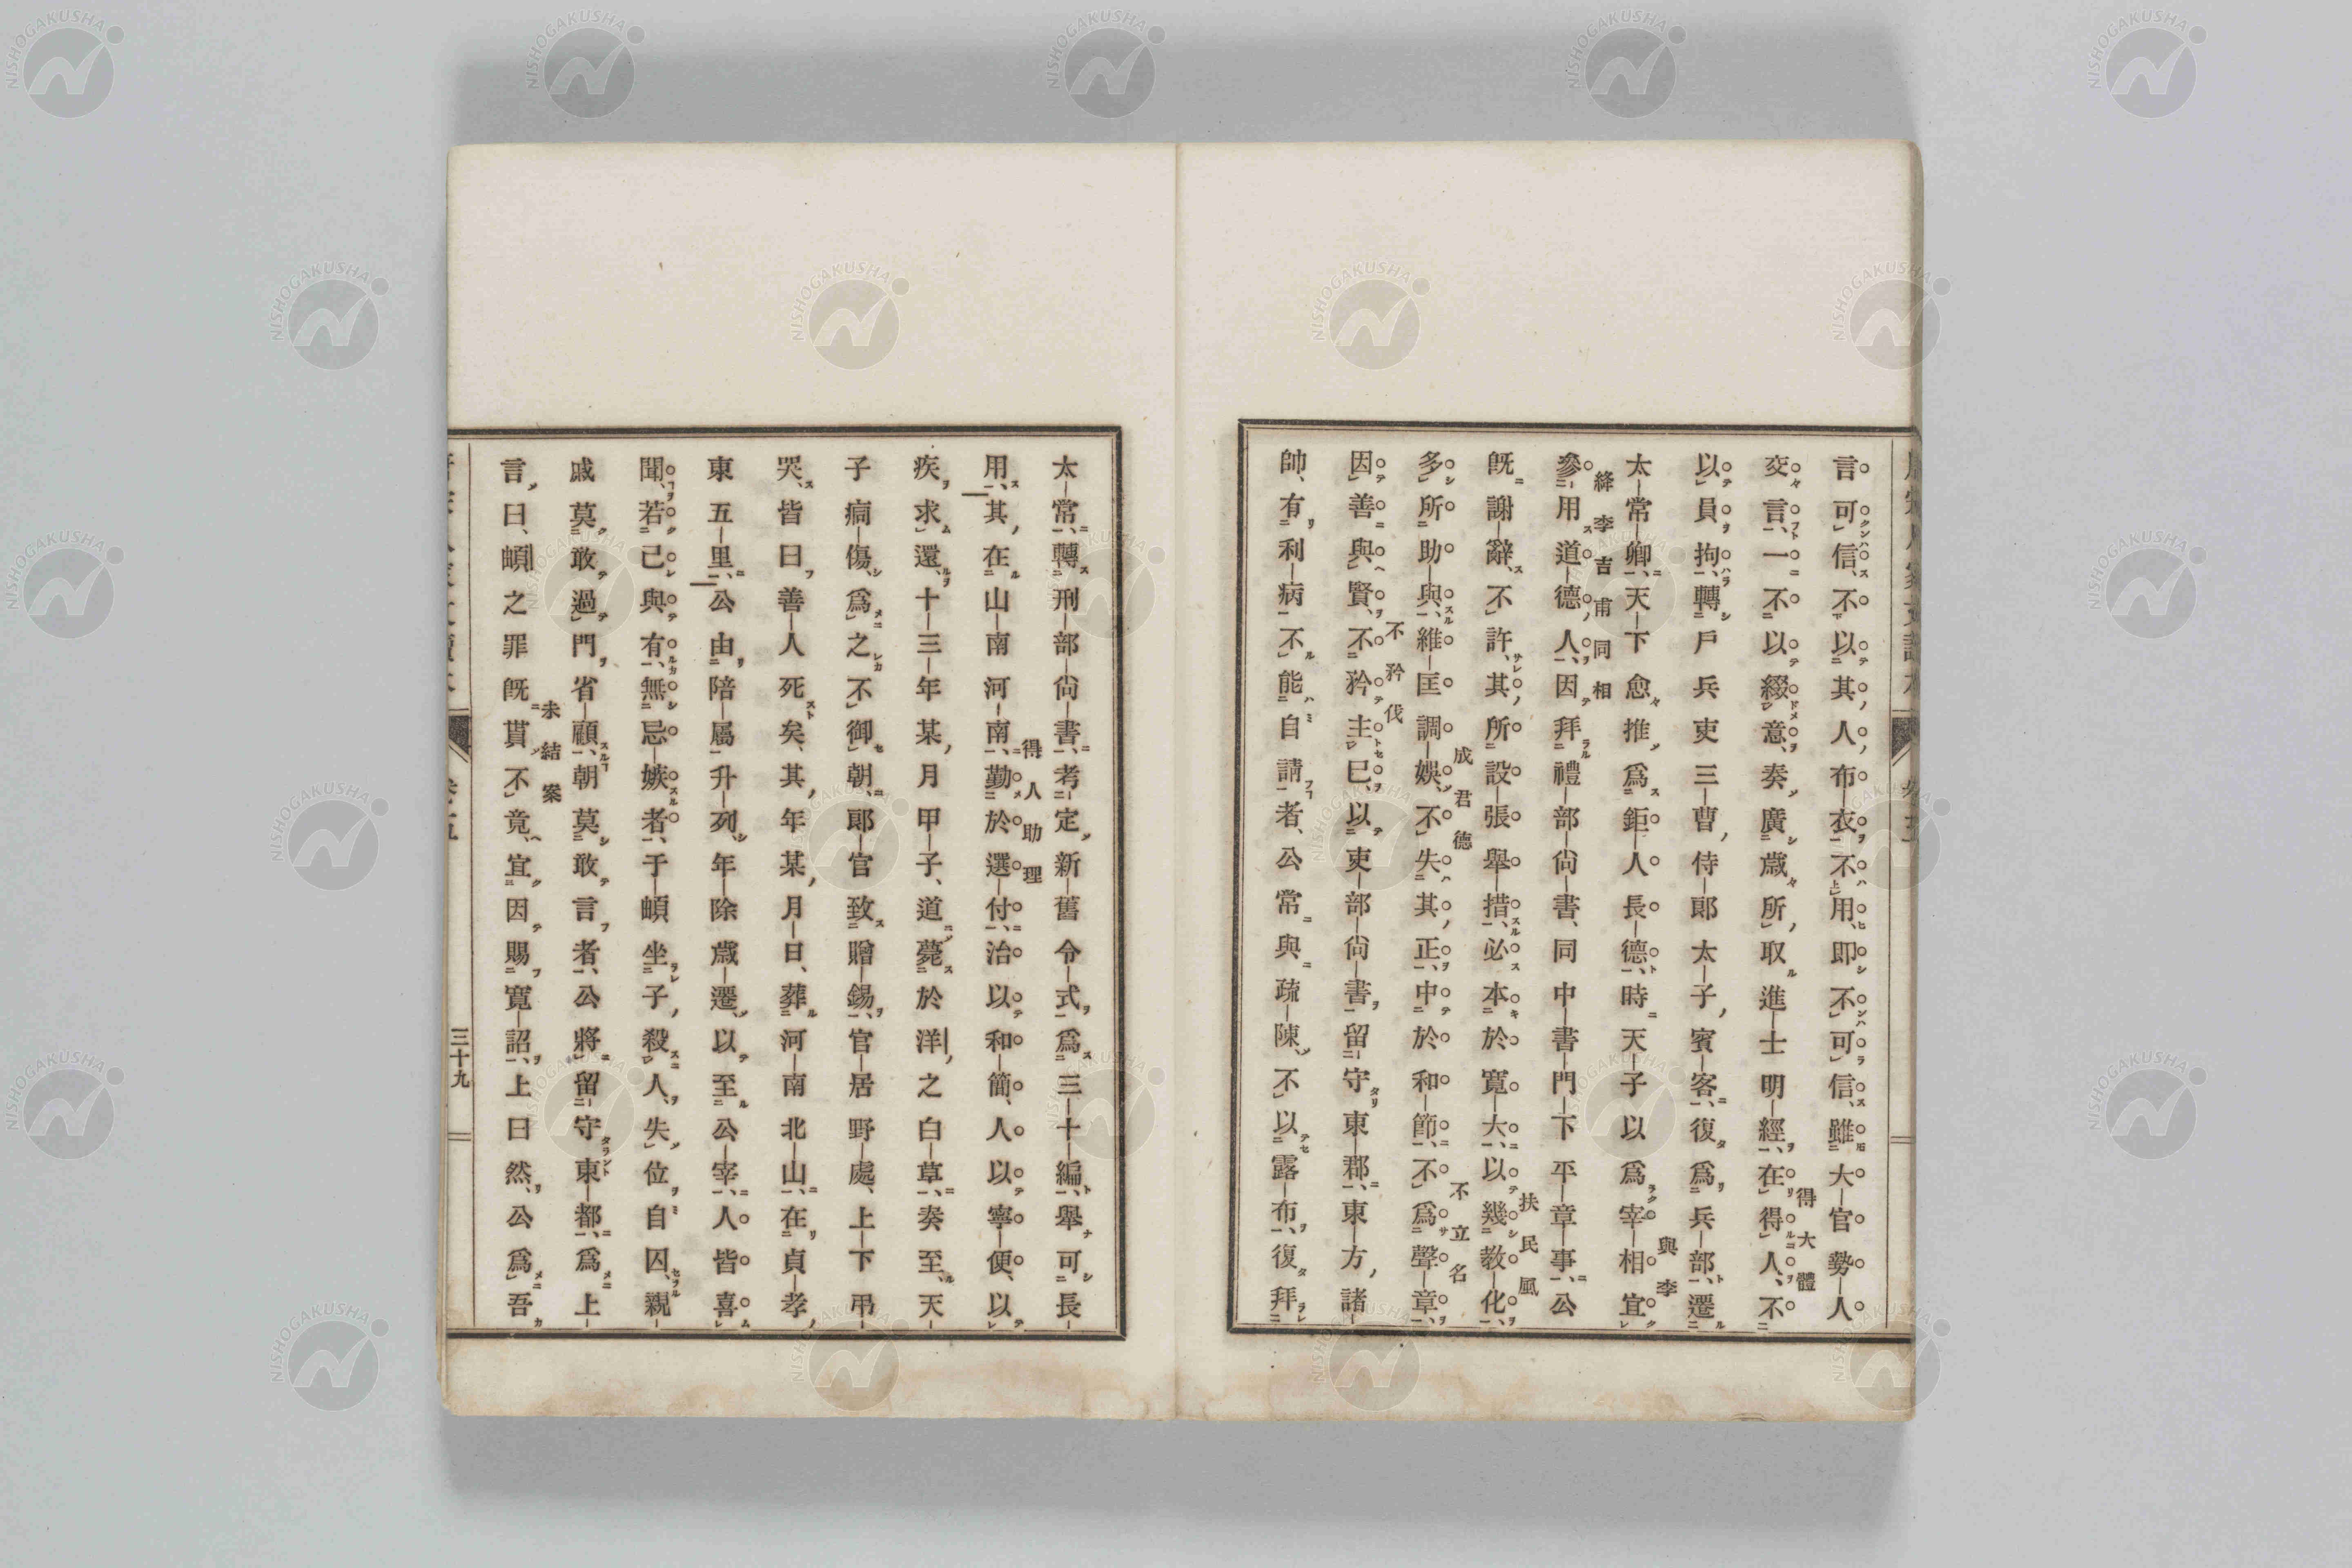 言可信不以其人布衣不用即不可信雖大官勢人
交言一不以綴意奏廣歲所取進士明經在得人不
得大體
以員拘轉戶兵吏三曹侍郎太子賓客復爲兵部遷
太常卿天下愈推爲鉅人長德時天子以爲宰相宜
與李絳李吉甫同相
參用道德人因拜禮部尙書同中書門下平章事公
既謝辭不許其所設張舉措必本於寬大以幾教化
扶民風
多所助與維匡調娛不失其正中於和節不爲聲章
成君德
不立名
因善與賢不矜主已以吏部尙書留守東郡東方諸
不矜伐
帥有利病不能自請者公常與疏陳不以露布復拜
太常轉刑部尙書考定新舊令式爲三十編舉可長
用其在山南河南勤於選付治以和簡人以寧便以
得人助理
疾求還十三年某月甲子道薨於洋之白草奏至天
子痌傷爲之不御朝郎官致贈錫官居野處上下弔
哭皆曰善人死矣其年某月日葬河南北山在貞孝
東五里公由陪屬升列年除歲遷以至公宰人皆喜
聞若己與有無忌嫉者于頔坐子殺人失位自囚親
戚莫敢過門省顧朝莫敢言者公將留守東都爲上
言曰頔之罪既貰不竟宜因賜寬詔上曰然公爲吾
未結案
三十九
NISHOGAKUSHA